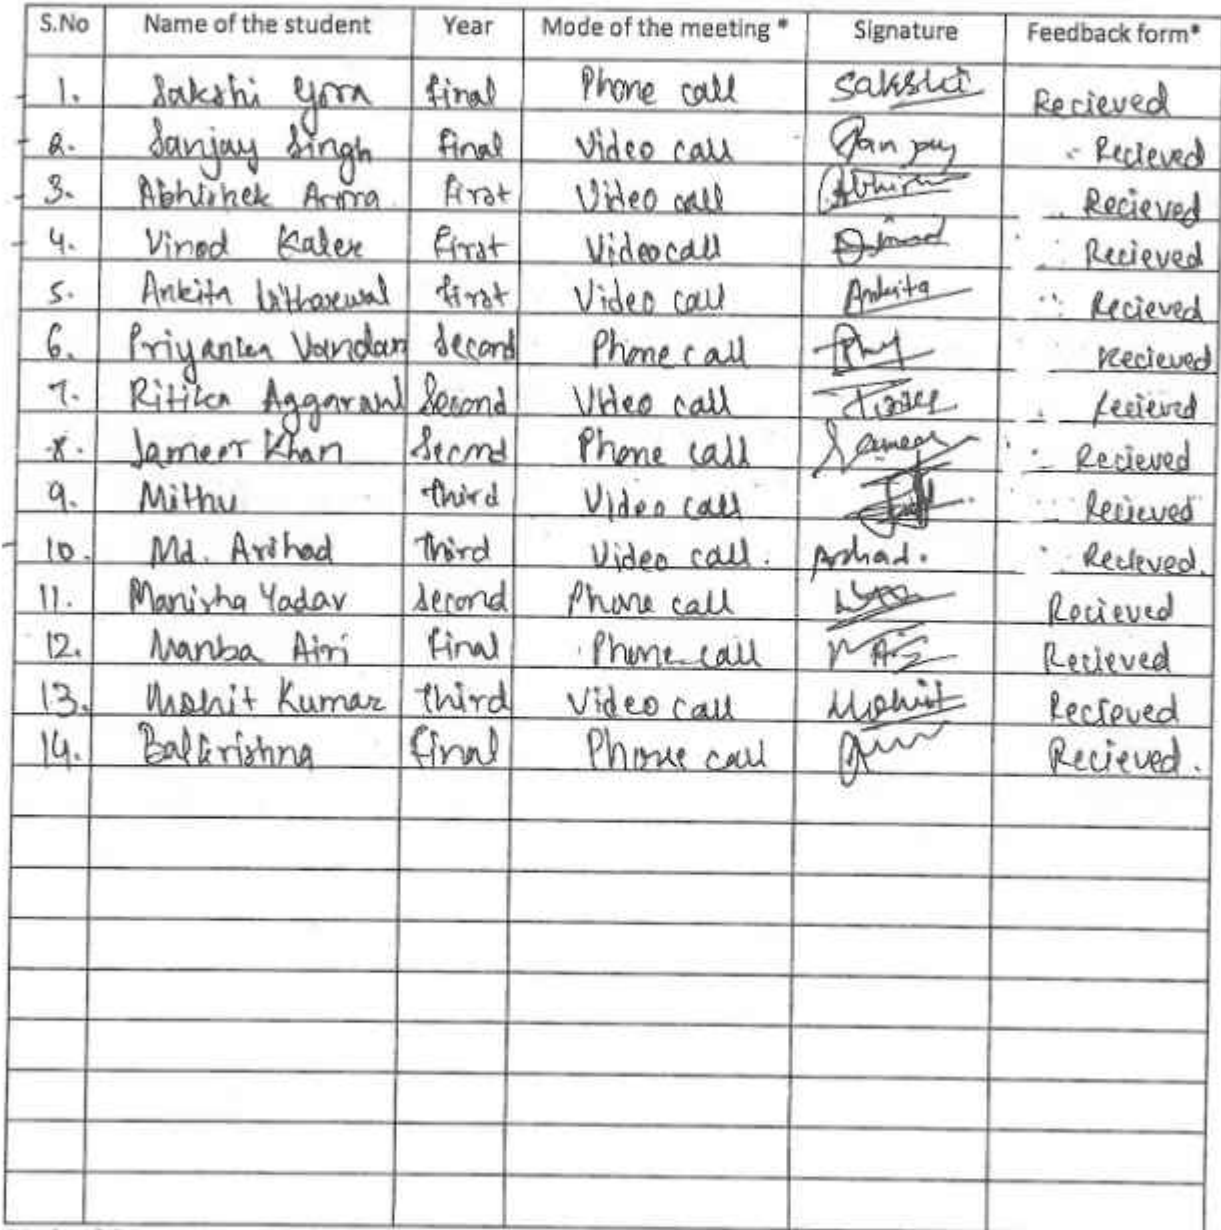 S.No Name of the student Year Mode of the meeting * Signature Feedback form*
1. Sakshi final Phone call Sakshi Recieved
2. Sanjay Singh final Video call Sanjay Recieved
3. Abhishek Arora first Video call Recieved
4. Vinod Kaler first Video call Recieved
5. Ankita first Video call Ankita Recieved
6. Priyanka Vandan Second Phone call Recieved
7. Ritika Aggarawl Second Video call Recieved
8. Sameer Khan Second Phone call Sameer Recieved
9. Mithu third Video call Recieved
10. Md. Arshad Third Video call. Arshad. Recieved.
11. Manisha Yadav Second Phone call Recieved
12. Airi final Phone call Recieved
13. Mohit Kumar third Video call Mohit Recieved
14. Balkrishna final Phone call Recieved.